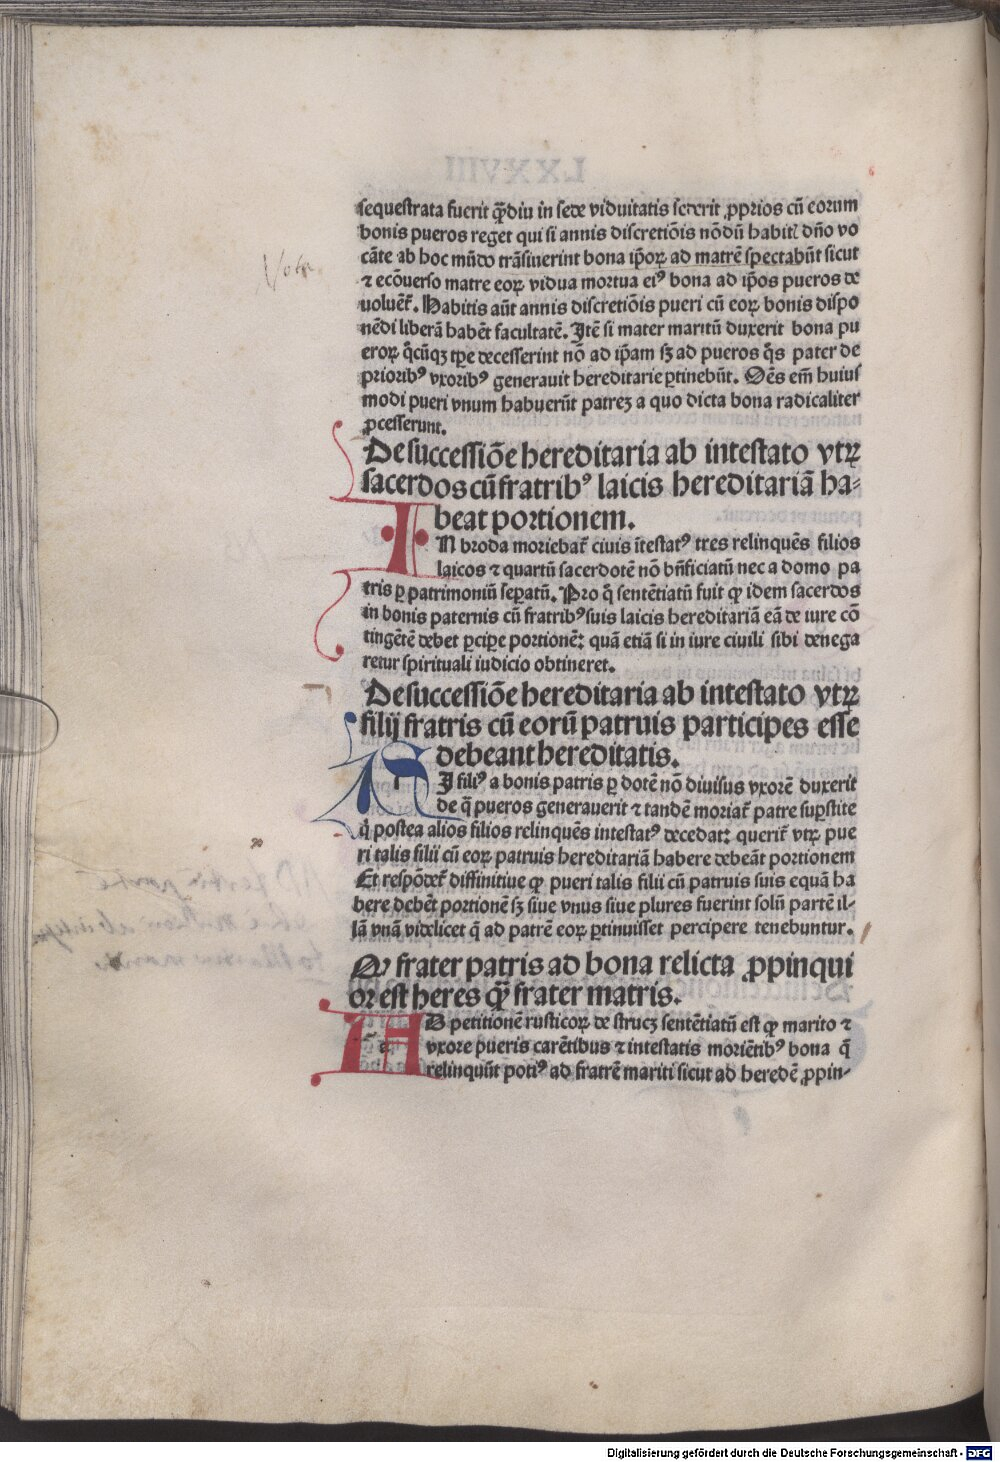 sequestrata fuerit qȝdiu in sede viduitatis sederit ꝓprios cū eorum
bonis pueros reget qui si annis discretiōis nōdū habitꝭ dño vo
cāte ab hoc mūdo trāsiuerint bona ip̄oꝝ ad matrē spectabūt sicut
⁊ ecōuerso matre eoꝝ vidua mortua eiꝰ bona ad ip̄os pueros de
uoluēt̄. Habitis aūt annis discretiōis pueri cū eoꝝ bonis dispo
nēdi liberā habēt facultatē. Itē si mater maritū duxerit bona pu
eroꝝ q̄cūqꝫ tꝑe decesserint nō ad ip̄am sꝫ ad pueros q̄s pater de
prioribꝰ vxoribꝰ generauit hereditarie ꝑtinebūt. Oēs em̄ huius
modi pueri vnum habuerūt patreꝫ a quo dicta bona radicaliter
ꝓcesserunt.
De successiōe hereditaria ab intestato vtꝝ
sacerdos cū fratribꝰ laicis hereditariā ha⸗
beat portionem.
IN broda moriebat̄ ciuis ītestatꝰ tres relinquēs filios
laicos ⁊ quartū sacerdotē nō bn̄ficiatū nec a domo pa
tris ꝑ patrimoniū sepatū. Pro q̄ sentētiatū fuit ꝙ idem sacerdos
in bonis paternis cū fratribꝰ suis laicis hereditariā eā de iure cō
tingētē debet ꝑcipe portionē: quā etiā si in iure ciuili sibi denega
retur spirituali iudicio obtineret.
De successiōe hereditaria ab intestato vtꝝ
filij fratris cū eorū patruis participes esse
debeant hereditatis.
SI filiꝰ a bonis patris ꝑ dotē nō diuisus vxorē duxerit
de q̄ pueros generauerit ⁊ tandē moriat̄ patre supstite
q̇ postea alios filios relinquēs intestatꝰ decedat: querit̄ vtꝝ pue
ri talis filii cū eoꝝ patruis hereditariā habere debeāt portionem
Et respōdet̄ diffinitiue ꝙ pueri talis filii cū patruis suis equā ha
bere debēt portionē sꝫ siue vnus siue plures fuerint solū partē il⸗
lā vnā videlicet q̄ ad patrē eoꝝ ꝑtinuisset percipere tenebuntur.
Ꝙ frater patris ad bona relicta ꝓpinqui
or est heres qȝ frater matris.
AD petitionē rusticoꝝ de strucꝫ sentētiatū est ꝙ marito ⁊
vxore pueris carētibus ⁊ intestatis moriētibꝰ bona q̄
relinquūt potiꝰ ad fratrē mariti sicut ad heredē ꝓpin⸗
Nota
Digitalisierung gefördert durch die Deutsche Forschungsgemeinschaft - DFG